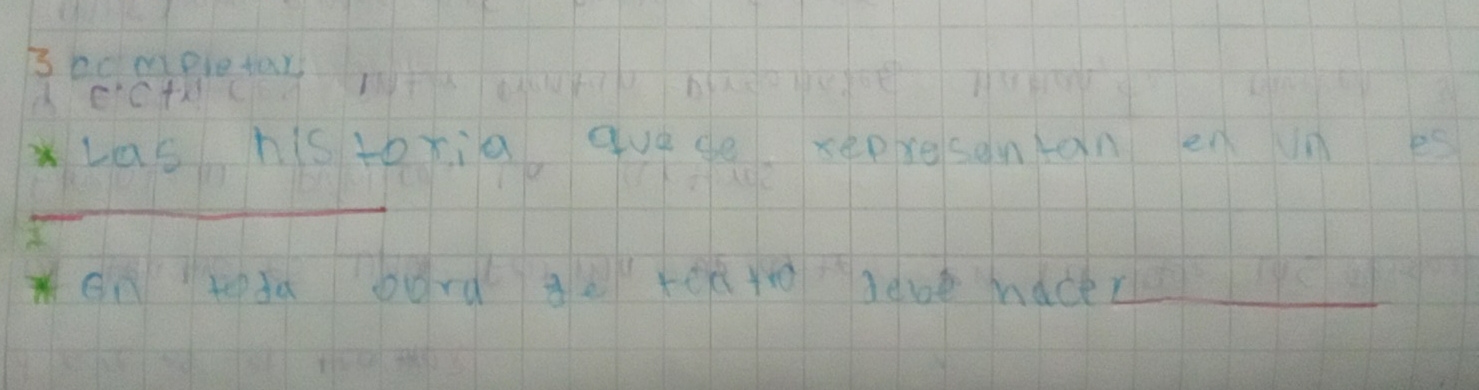 3 completar
* Las historia que se representan en un es
* En toda obra de teatro debe hacer